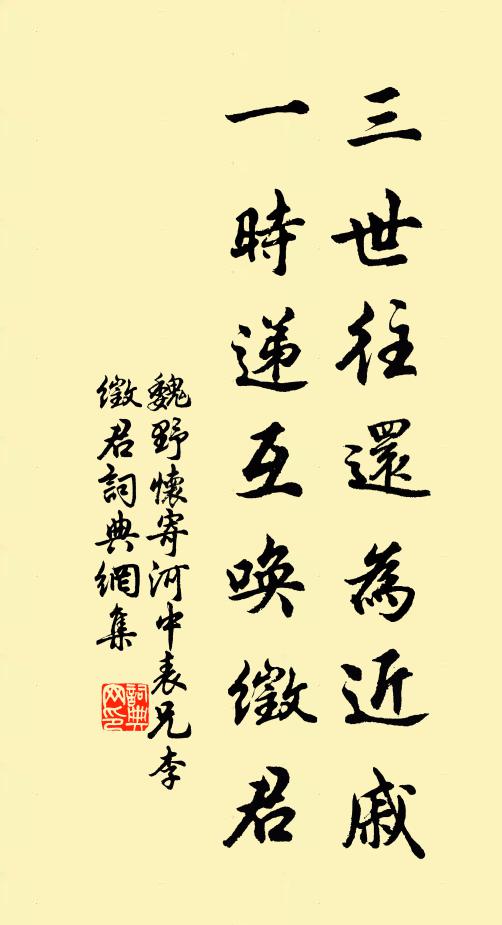 三世往還為近戚
一時递互唤徵君
魏野懷寄河中表兄李
徵君詞典網集
詞典
网印